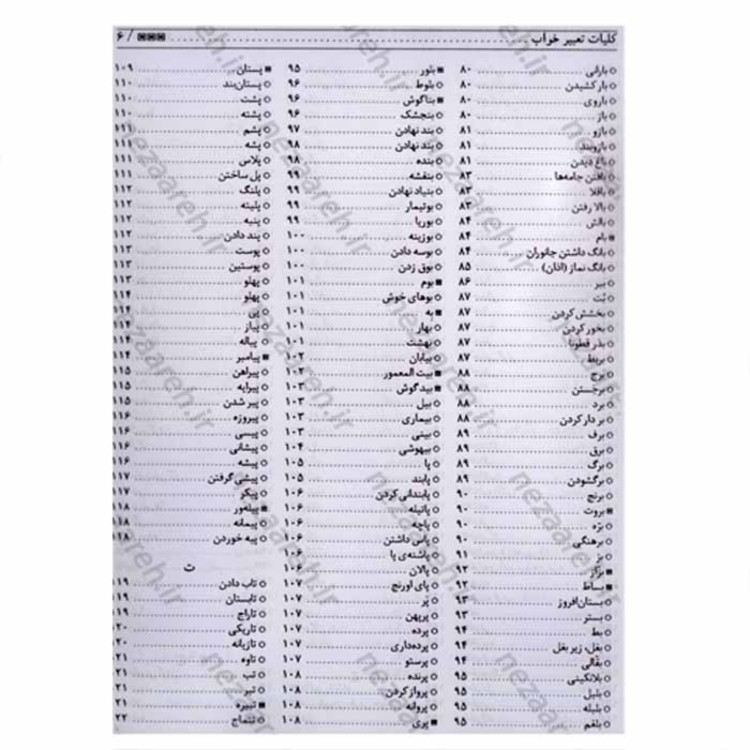 کلیات تعبیر خواب ........ ۶ /
بارانی ........ ۸۰
بار کشیدن ........ ۸۰
باروی ........ ۸۰
باز ........ ۸۰
بازو ........ ۸۱
بازوبند ........ ۸۱
باغ دیدن ........ ۸۱
بافتن جامه‌ها ........ ۸۳
باقلا ........ ۸۳
بالا رفتن ........ ۸۳
بالش ........ ۸۴
بام ........ ۸۴
بانگ داشتن جانوران ........ ۸۴
بانگ نماز (اذان) ........ ۸۵
ببر ........ ۸۶
بُت ........ ۸۷
بخشش کردن ........ ۸۷
بخور کردن ........ ۸۷
بذر قطونا ........ ۸۷
بربط ........ ۸۷
برج ........ ۸۸
برجستن ........ ۸۸
برد ........ ۸۸
بر دار کردن ........ ۸۸
برف ........ ۸۹
برق ........ ۸۹
برگ ........ ۸۹
برگشودن ........ ۸۹
برنج ........ ۹۰
بروت ........ ۹۰
برّه ........ ۹۰
برهنگی ........ ۹۰
بز ........ ۹۱
بزاز ........ ۹۲
بساط ........ ۹۲
بستان‌افروز ........ ۹۳
بستر ........ ۹۳
بط ........ ۹۴
بغل، زیر بغل ........ ۹۴
بقّالی ........ ۹۴
بلاتکینی ........ ۹۵
بلبل ........ ۹۵
بلبله ........ ۹۵
بلغم ........ ۹۵
بلور ........ ۹۵
بلوط ........ ۹۶
بناگوش ........ ۹۶
بنجشک ........ ۹۶
بند نهادن ........ ۹۷
بند نهادن ........ ۹۸
بنده ........ ۹۸
بنفشه ........ ۹۸
بنیاد نهادن ........ ۹۹
بوتیمار ........ ۹۹
بوریا ........ ۹۹
بوزینه ........ ۱۰۰
بوسه دادن ........ ۱۰۰
بوق زدن ........ ۱۰۰
بوم ........ ۱۰۱
بوهای خوش ........ ۱۰۱
به ........ ۱۰۱
بهار ........ ۱۰۱
بهشت ........ ۱۰۱
بیابان ........ ۱۰۲
بیت المعمور ........ ۱۰۲
بیدگوش ........ ۱۰۳
بیل ........ ۱۰۳
بیماری ........ ۱۰۳
بینی ........ ۱۰۳
بیهوشی ........ ۱۰۴
پا ........ ۱۰۵
پابند ........ ۱۰۵
پابندانی کردن ........ ۱۰۶
پاتیله ........ ۱۰۶
پاچه ........ ۱۰۶
پاس داشتن ........ ۱۰۶
پاشنه‌ی پا ........ ۱۰۶
پالان ........ ۱۰۶
پای اورنج ........ ۱۰۷
پر ........ ۱۰۷
پرپهن ........ ۱۰۷
پرده ........ ۱۰۷
پرده‌داری ........ ۱۰۷
پرستو ........ ۱۰۷
پرنده ........ ۱۰۸
پرواز کردن ........ ۱۰۸
پروانه ........ ۱۰۸
پری ........ ۱۰۸
پستان ........ ۱۰۹
پستان‌بند ........ ۱۱۰
پشت ........ ۱۱۰
پشته ........ ۱۱۰
پشم ........ ۱۱۱
پشه ........ ۱۱۱
پلاس ........ ۱۱۱
پل ساختن ........ ۱۱۱
پلنگ ........ ۱۱۲
پلیته ........ ۱۱۲
پنبه ........ ۱۱۲
پند دادن ........ ۱۱۲
پوست ........ ۱۱۳
پوستین ........ ۱۱۳
پهلو ........ ۱۱۳
پهلو ........ ۱۱۴
پی ........ ۱۱۴
پیاز ........ ۱۱۴
پیاله ........ ۱۱۴
پیامبر ........ ۱۱۴
پیراهن ........ ۱۱۵
پیرایه ........ ۱۱۵
پیر شدن ........ ۱۱۵
پیروزه ........ ۱۱۶
پیسی ........ ۱۱۶
پیشانی ........ ۱۱۶
پیشه ........ ۱۱۶
پیشی گرفتن ........ ۱۱۷
پیکر ........ ۱۱۷
پیله‌ور ........ ۱۱۸
پیمانه ........ ۱۱۸
پیه خوردن ........ ۱۱۸
ت
تاب دادن ........ ۱۱۹
تابستان ........ ۱۱۹
تاراج ........ ۱۱۹
تاریکی ........ ۱۲۰
تازیانه ........ ۱۲۰
تاوه ........ ۱۲۱
تب ........ ۱۲۱
تبر ........ ۱۲۱
تبیره ........ ۱۲۱
تتماج ........ ۱۲۲
nezaareh.ir